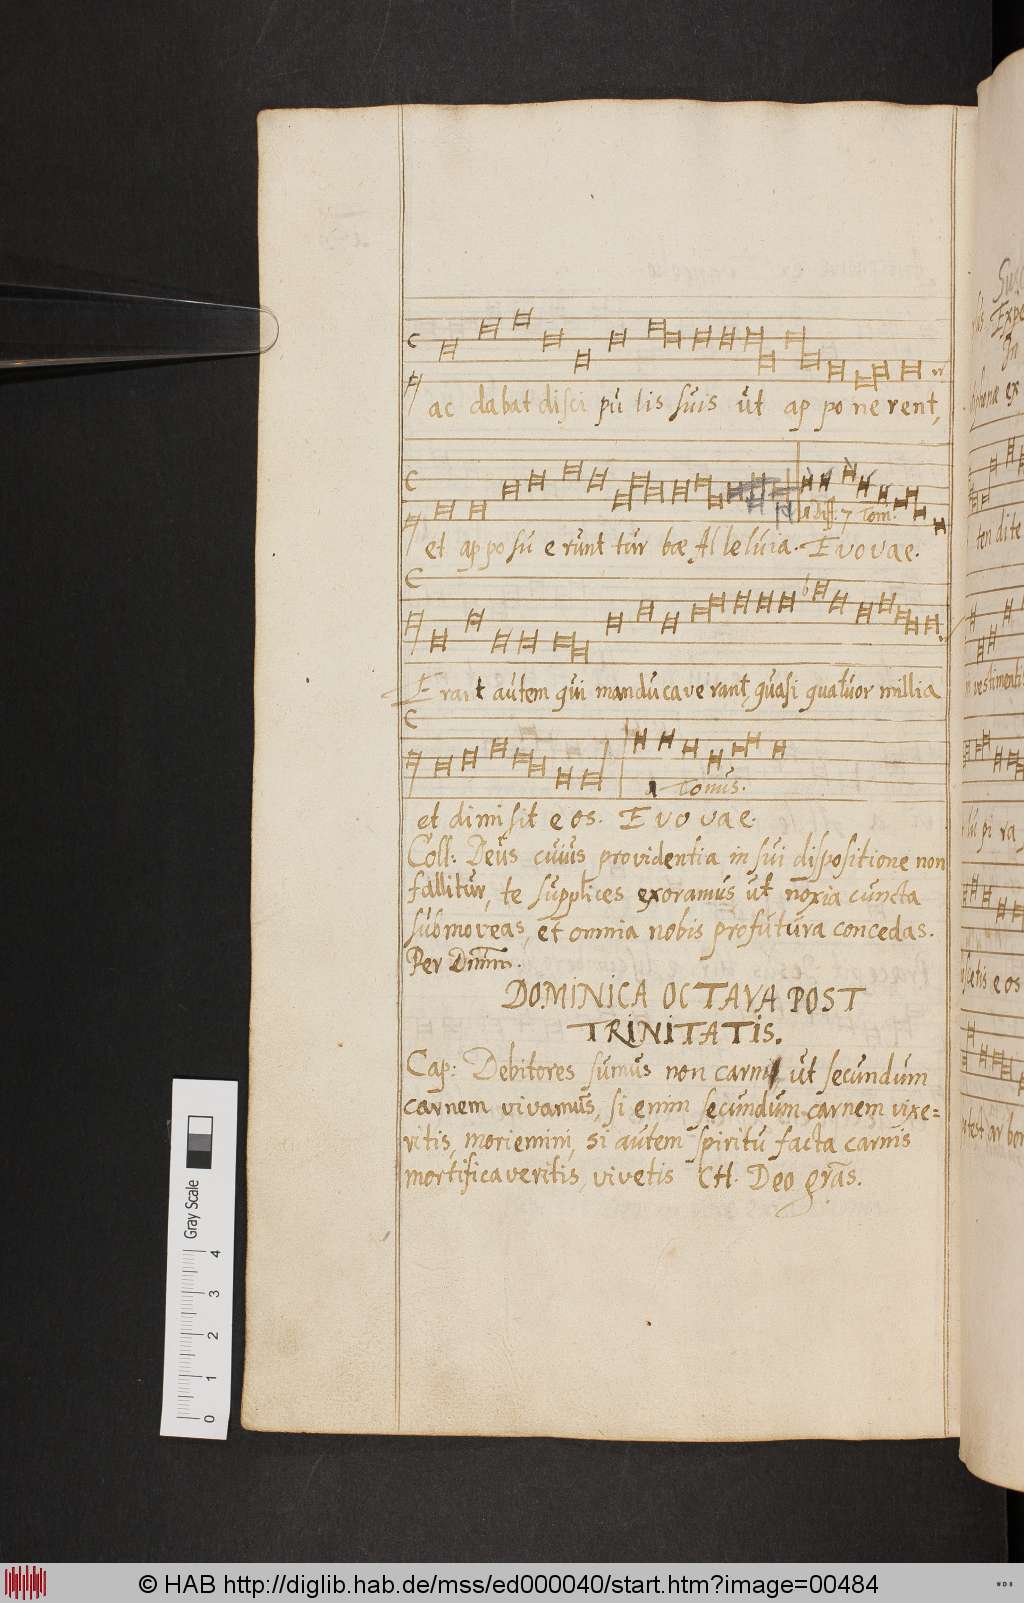 ac dabat disci pu lis suis ut ap po nerent,
1 Diff. 7 Tom.
et ap po su e runt tur bæ Al le luia. Evovae.
Erant autem qui manducave rant, quasi quatuor millia
1 Tonus.
et dimisit eos. Evovae.
Coll: Deus cuius providentia in sui dispositione non
fallitur, te supplices exoramus ut noxia cuncta
submoveas, et omnia nobis profutura concedas.
Per Dnm.
DOMINICA OCTAVA POST
TRINITATIS.
Cap: Debitores sumus non carni ut secundum
carnem vivamus, si enim secundum carnem vixe=
ritis, moriemini, si autem spiritu facta carnis
mortificaveritis, vivetis CH. Deo gras.
Gray Scale
0 1 2 3 4
© HAB http://diglib.hab.de/mss/ed000040/start.htm?image=00484